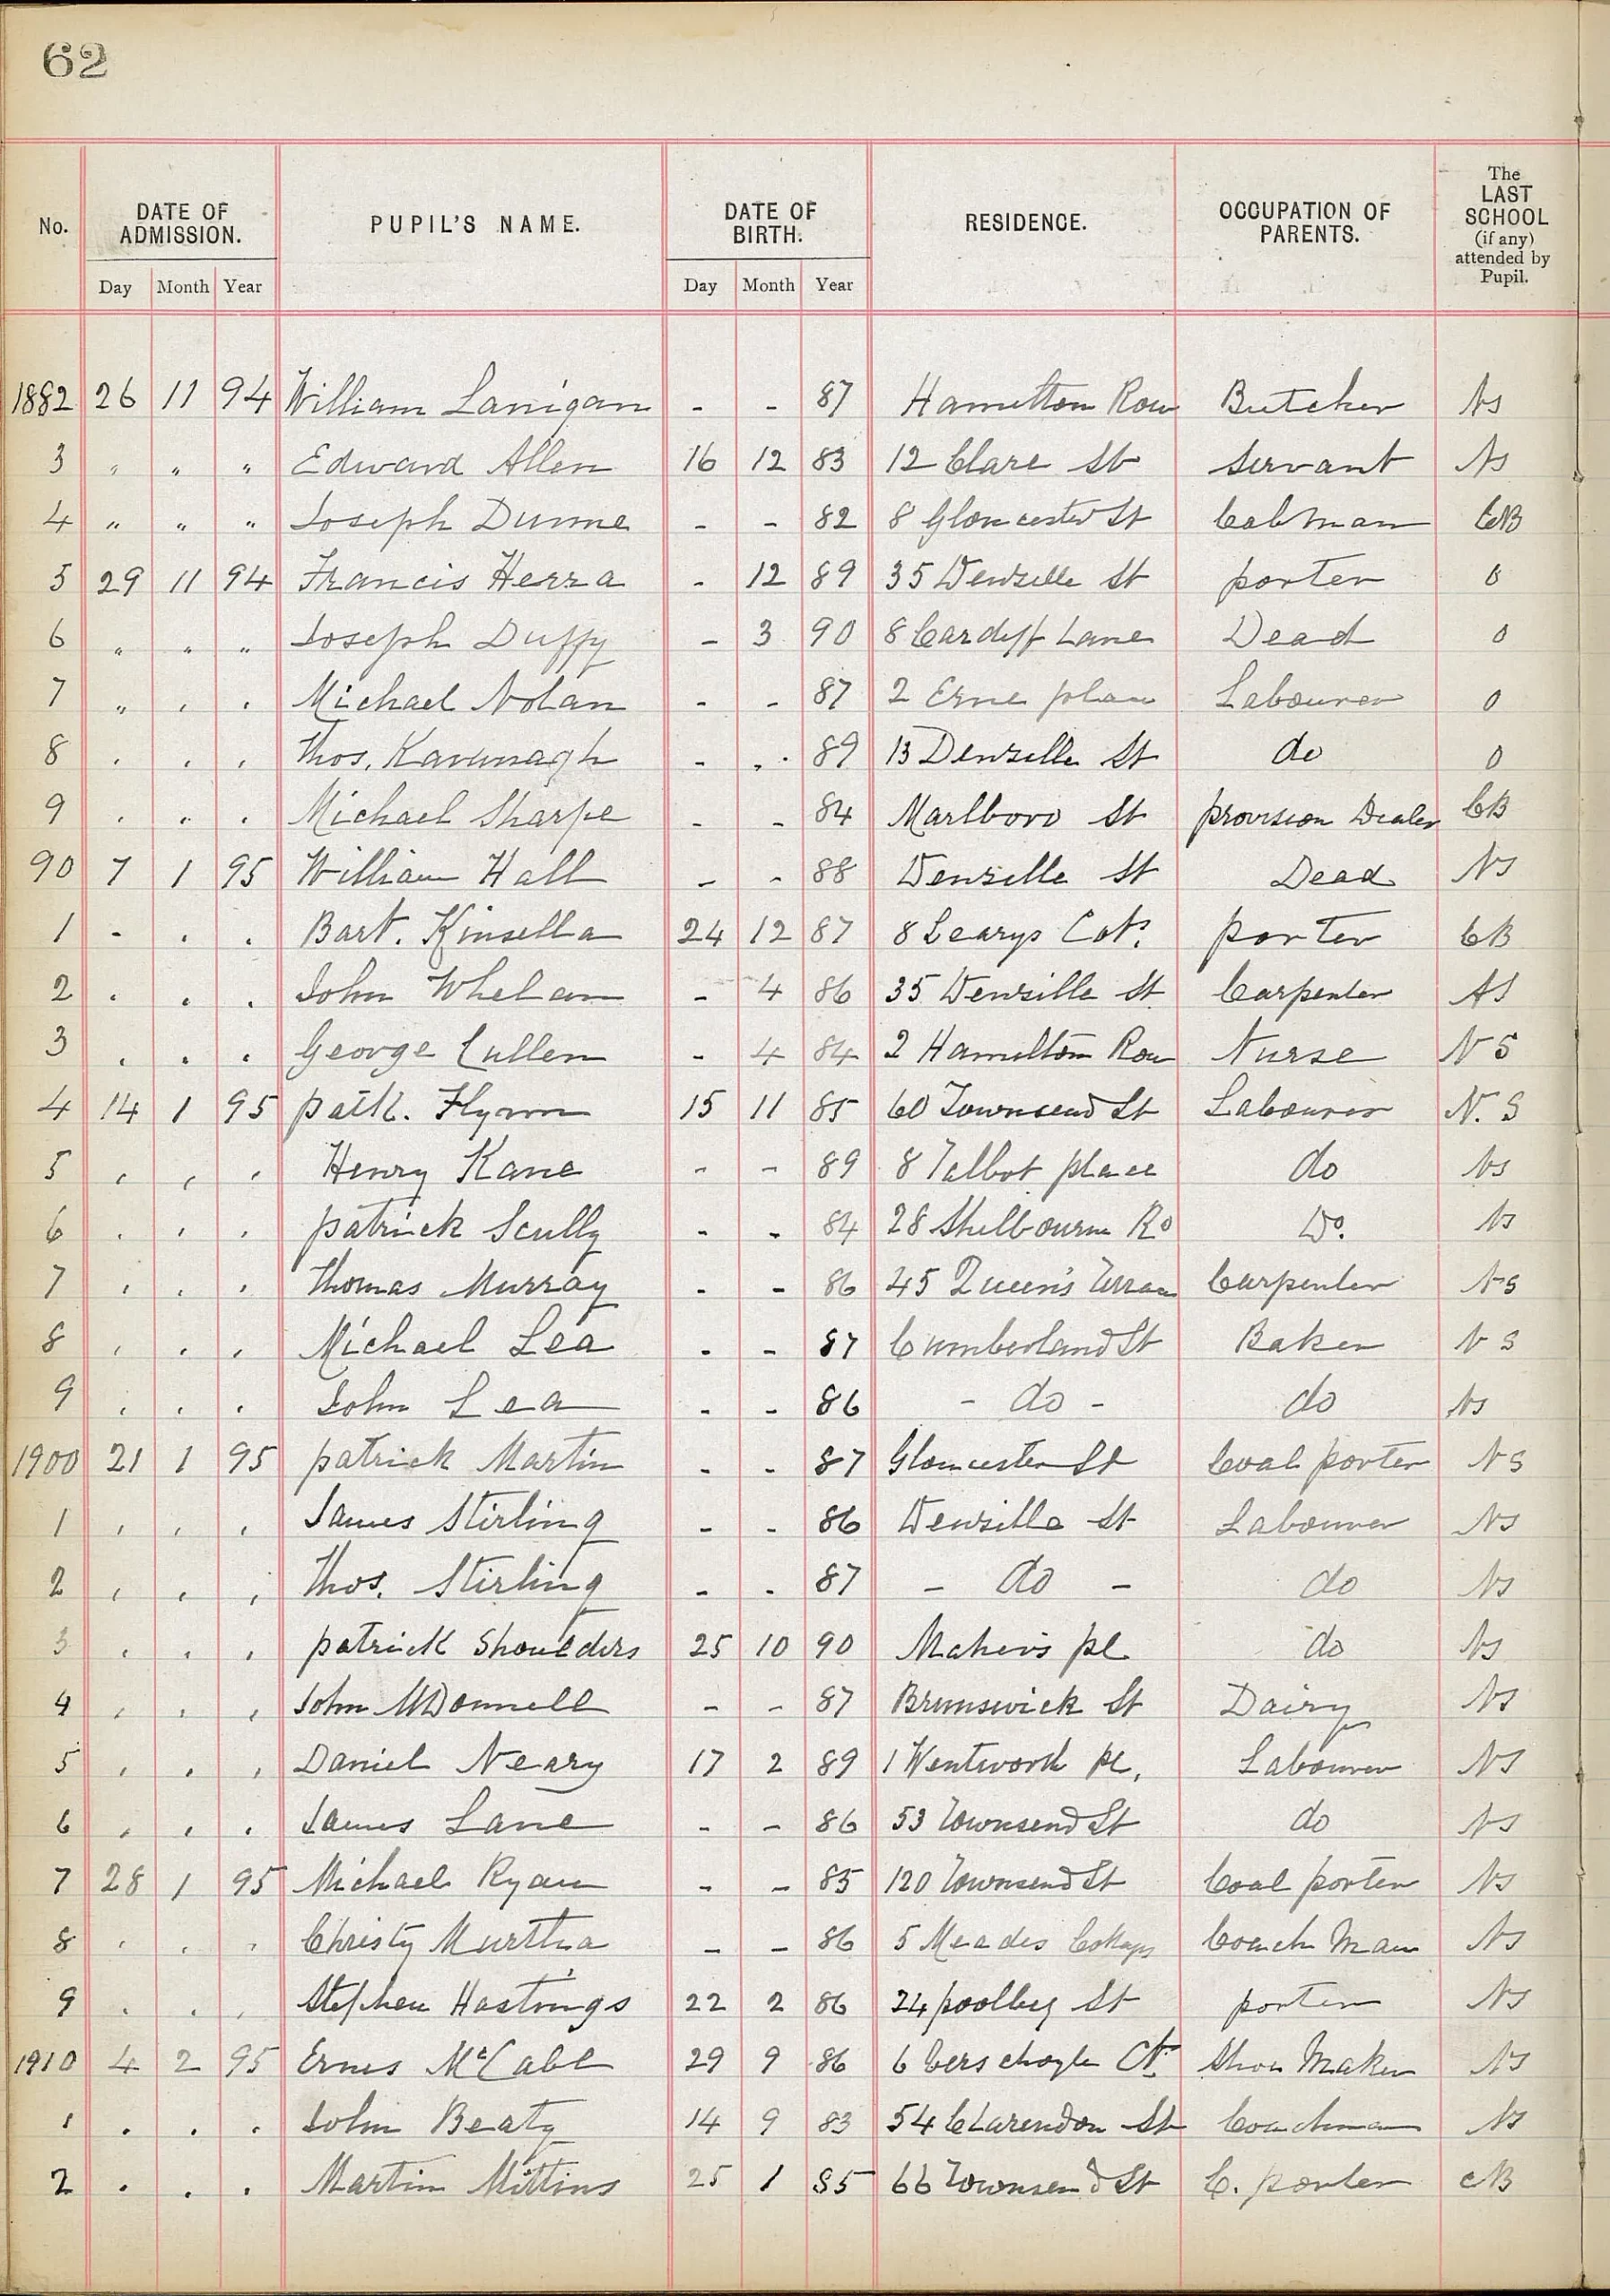 62
No. DATE OF ADMISSION. PUPIL'S NAME. DATE OF BIRTH. RESIDENCE. OCCUPATION OF PARENTS. The LAST SCHOOL (if any) attended by Pupil.
Day Month Year Day Month Year
1882 26 11 94 William Lanigan - - 87 Hamilton Row Butcher NS
3 " " " Edward Allen 16 12 83 12 Clare St Servant NS
4 " " " Joseph Dunne - - 82 8 Gloucester St Cabman CB
5 29 11 94 Francis Herra - 12 89 35 Denzille St porter 0
6 " " " Joseph Duffy - 3 90 8 Cardiff Lane Dead 0
7 " " " Michael Nolan - - 87 2 Erne place Labourer 0
8 " " " Thos. Kavanagh - - 89 13 Denzille St do 0
9 " " " Michael Sharpe - - 84 Marlboro St provision Dealer CB
90 7 1 95 William Hall - - 88 Denzille St Dead NS
1 - . . Bart. Kinsella 24 12 87 8 Learys Cots. porter CB
2 . . . John Whelan - 4 86 35 Denzille St Carpenter NS
3 . . . George Cullen - 4 84 2 Hamilton Row Nurse NS
4 14 1 95 patk. Flynn 15 11 85 60 Townsend St Labourer N.S
5 , , , Henry Kane - - 89 8 Talbot place do NS
6 . . . patrick Scully - - 84 28 Shelbourne Rd Do. NS
7 . . . Thomas Murray - - 86 45 Queen's Terrace Carpenter NS
8 . . . Michael Lea - - 87 Cumberland St Baker NS
9 . . . John Lea - - 86 - do - do NS
1900 21 1 95 patrick Martin - - 87 Gloucester St Coal porter NS
1 , , , James Stirling - - 86 Denzille St Labourer NS
2 , , , Thos. Stirling - - 87 - do - do NS
3 . . . patrick Shoulders 25 10 90 Maher's pl. do NS
4 , , , John McDonnell - - 87 Brunswick St Dairy NS
5 , , , Daniel Neary 17 2 89 1 Wentworth pl. Labourer NS
6 , , , James Lane - - 86 53 Townsend St do NS
7 28 1 95 Michael Ryan - - 85 120 Townsend St Coal porter NS
8 . . . Christy Murtha - - 86 5 Meades Cottages Coach Man NS
9 . . . Stephen Hastings 22 2 86 24 poolbeg St porter NS
1910 4 2 95 Ernes McCabe 29 9 86 6 Ct. Shoe Maker NS
1 . . . John Beaty 14 9 83 54 Clarendon St Coachman NS
2 . . . Martin Mittins 25 1 85 66 Townsend St C. porter CB